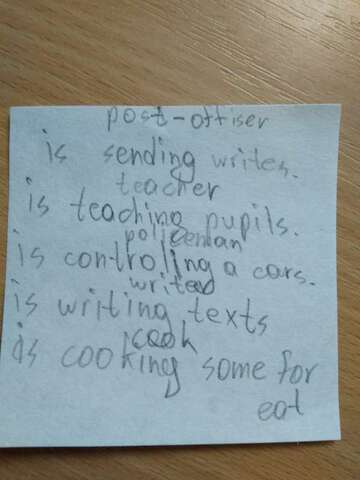 post-offiser
is sending writes.
teacher
is teaching pupils.
policeman
is controling a cars.
writed
is writing texts
cook
is cooking some for
eat